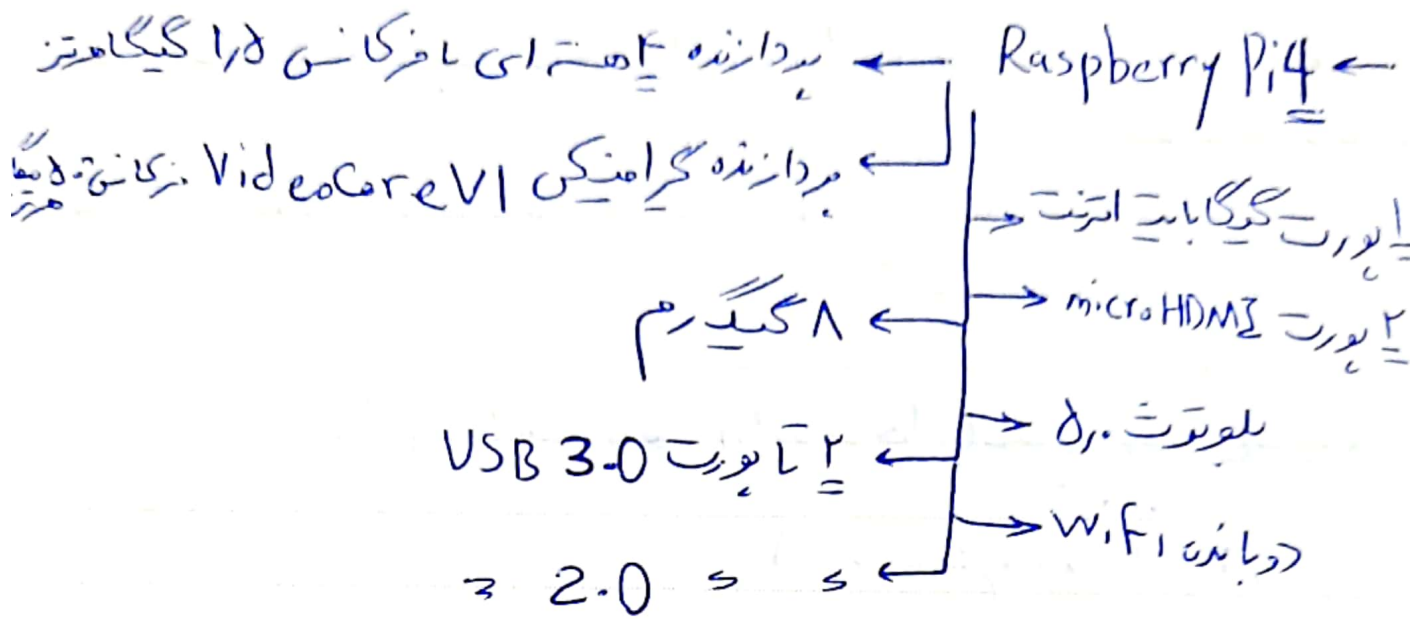 ← Raspberry Pi 4
← پردازنده ۴ هسته ای با فرکانس ۱٫۵ گیگاهرتز
← پردازنده گرافیکی VideoCore VI فرکانس ۵۰۰ مگاهرتز
→ ۱ پورت گیگابایت اترنت
→ ۲ پورت microHDMI
← ۸ گیگ رم
→ بلوتوث ۵٫۰
← ۲ تا پورت USB 3.0
→ WiFi دو بانده
← 〃 〃 2.0 〃